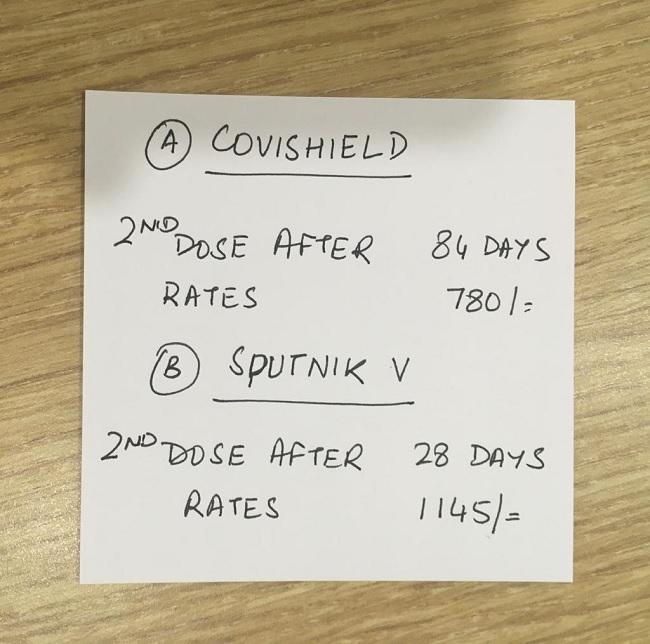 A COVISHIELD
2ND DOSE AFTER 84 DAYS
RATES 780/=
B SPUTNIK V
2ND DOSE AFTER 28 DAYS
RATES 1145/=